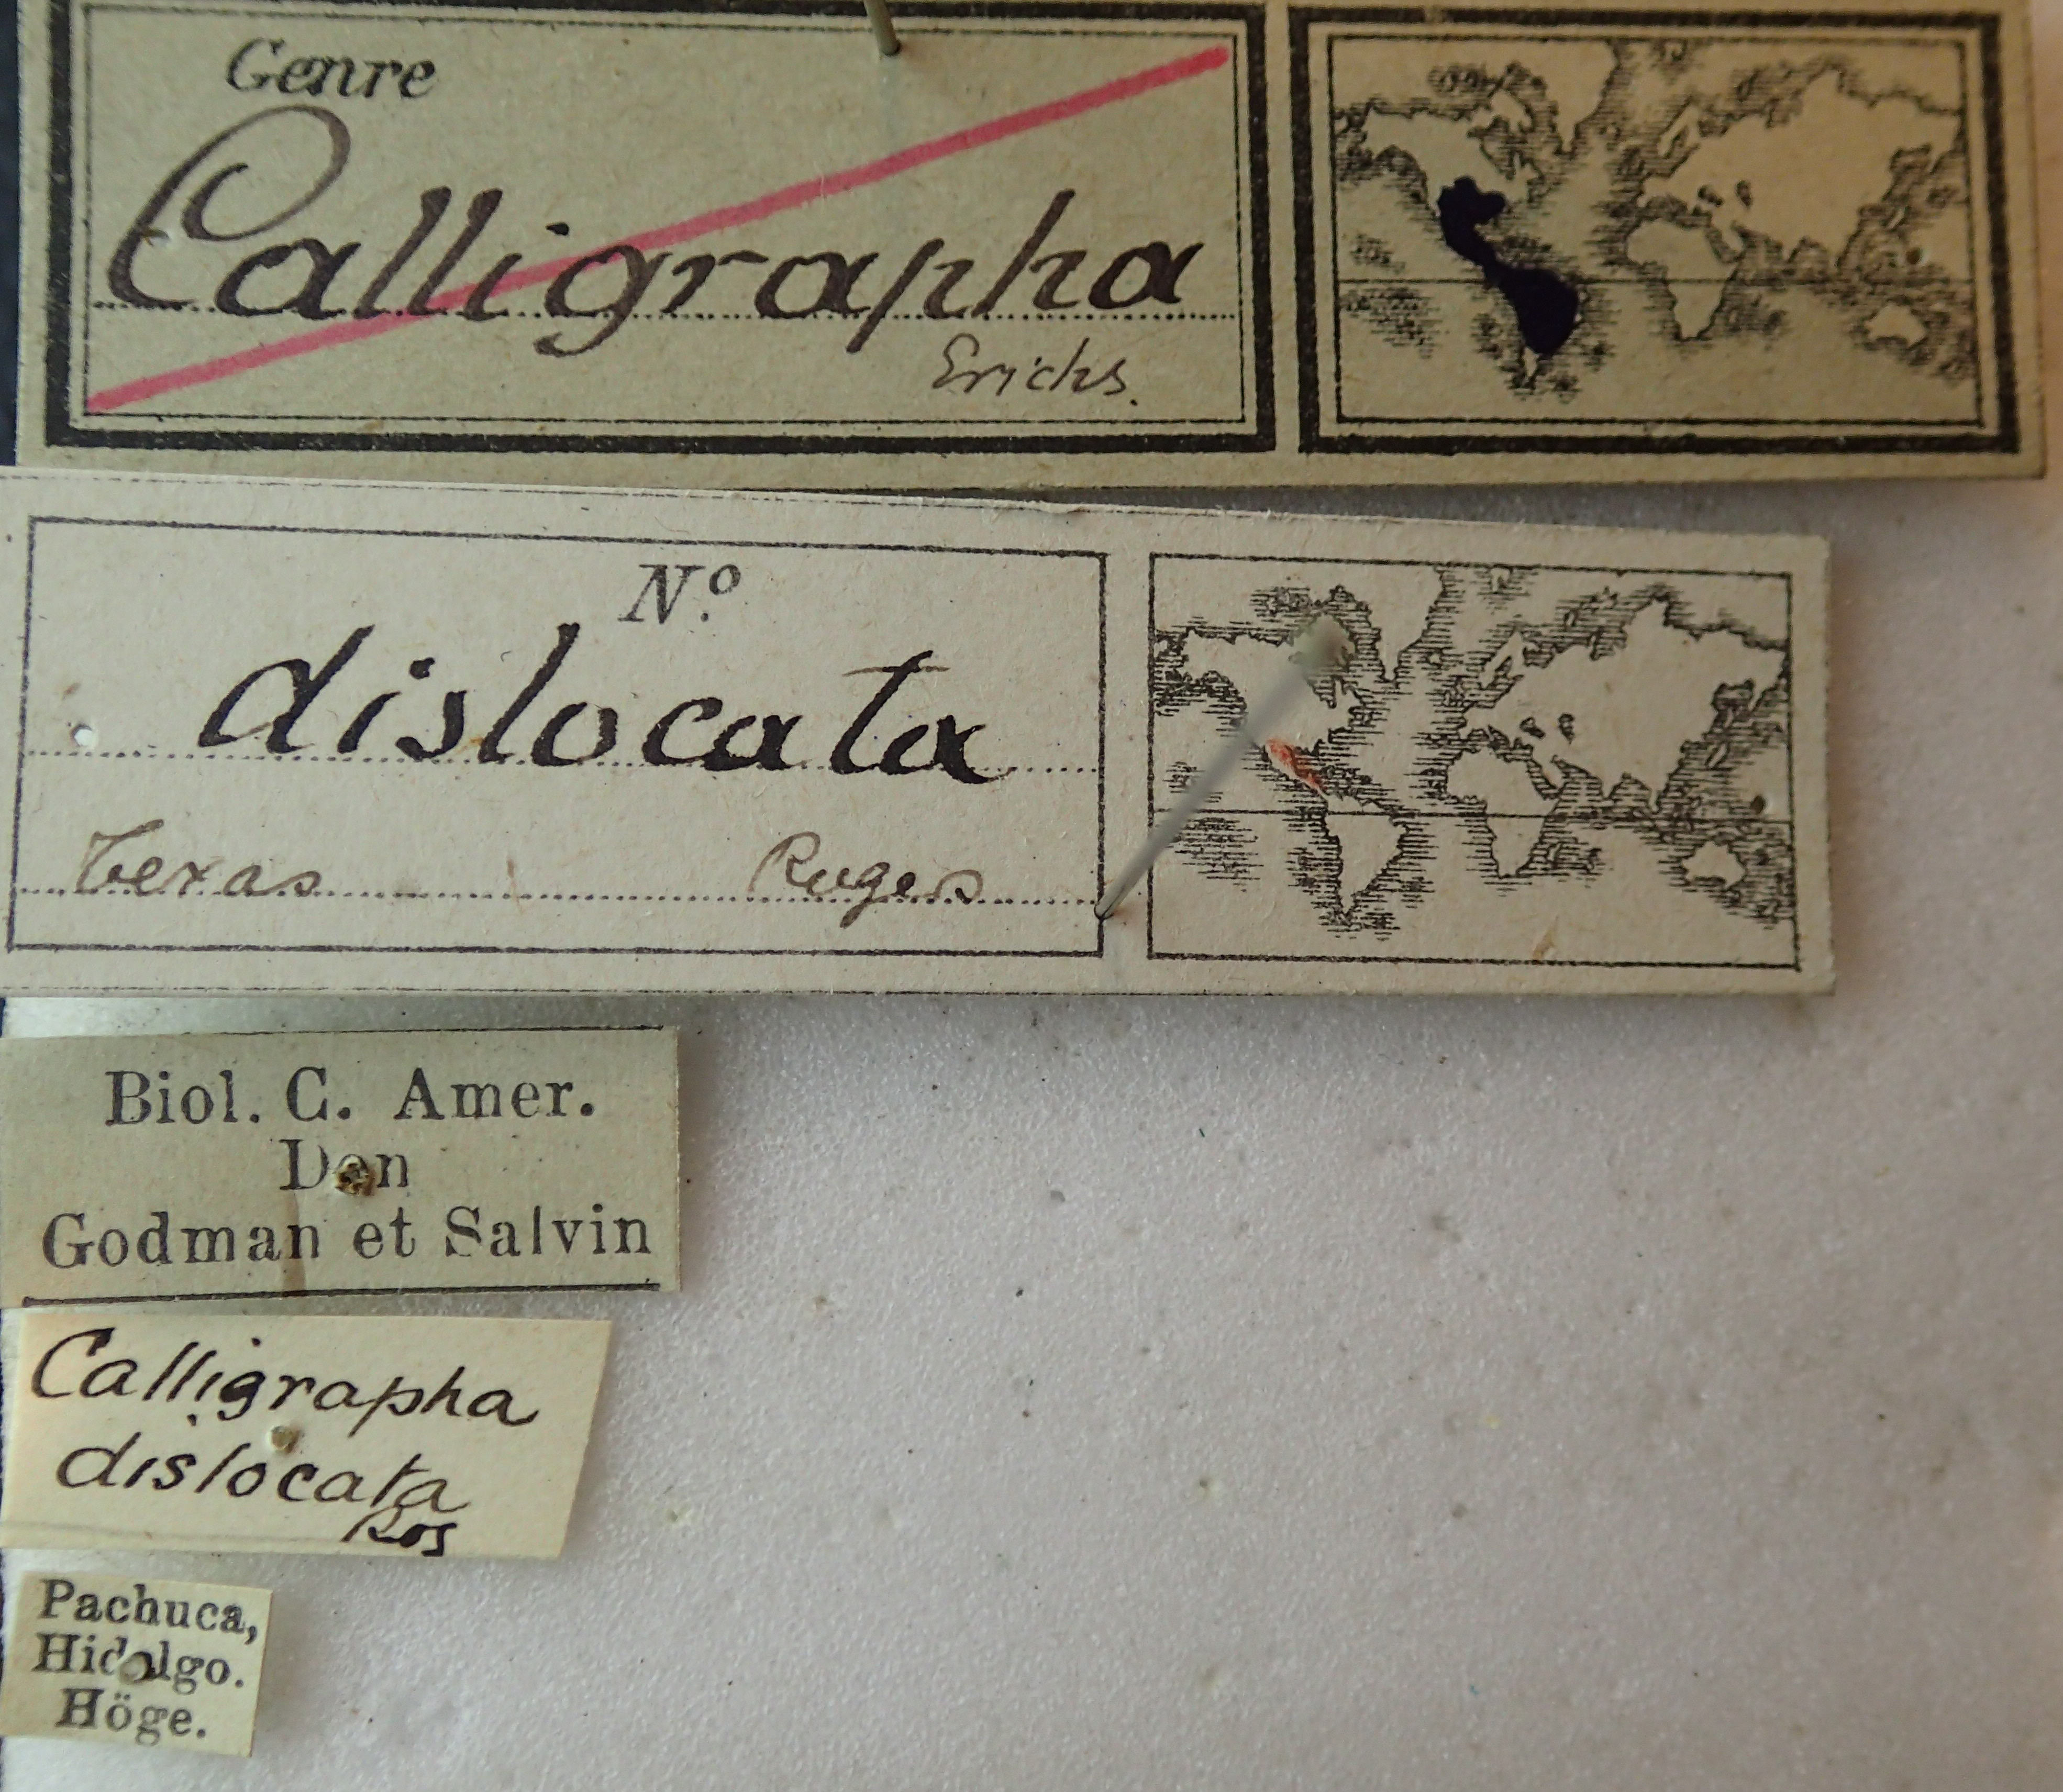 Genre
Calligrapha
Erichs.
N.º
dislocata
Texas Rogers
Biol. C. Amer.
Don
Godman et Salvin
Calligrapha
dislocata
Pachuca,
Hidalgo.
Höge.